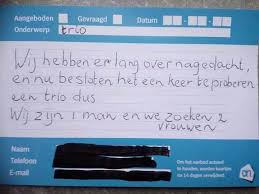 Aangeboden Gevraagd Datum
Onderwerp trio
Wij hebben er lang over nagedacht,
en nu besloten het een keer te proberen
een trio dus
Wij zijn 1 man en we zoeken 2
vrouwen
Naam
Telefoon
E-mail
Om het aanbod actueel
te houden, worden kaartjes
na 14 dagen verwijderd.